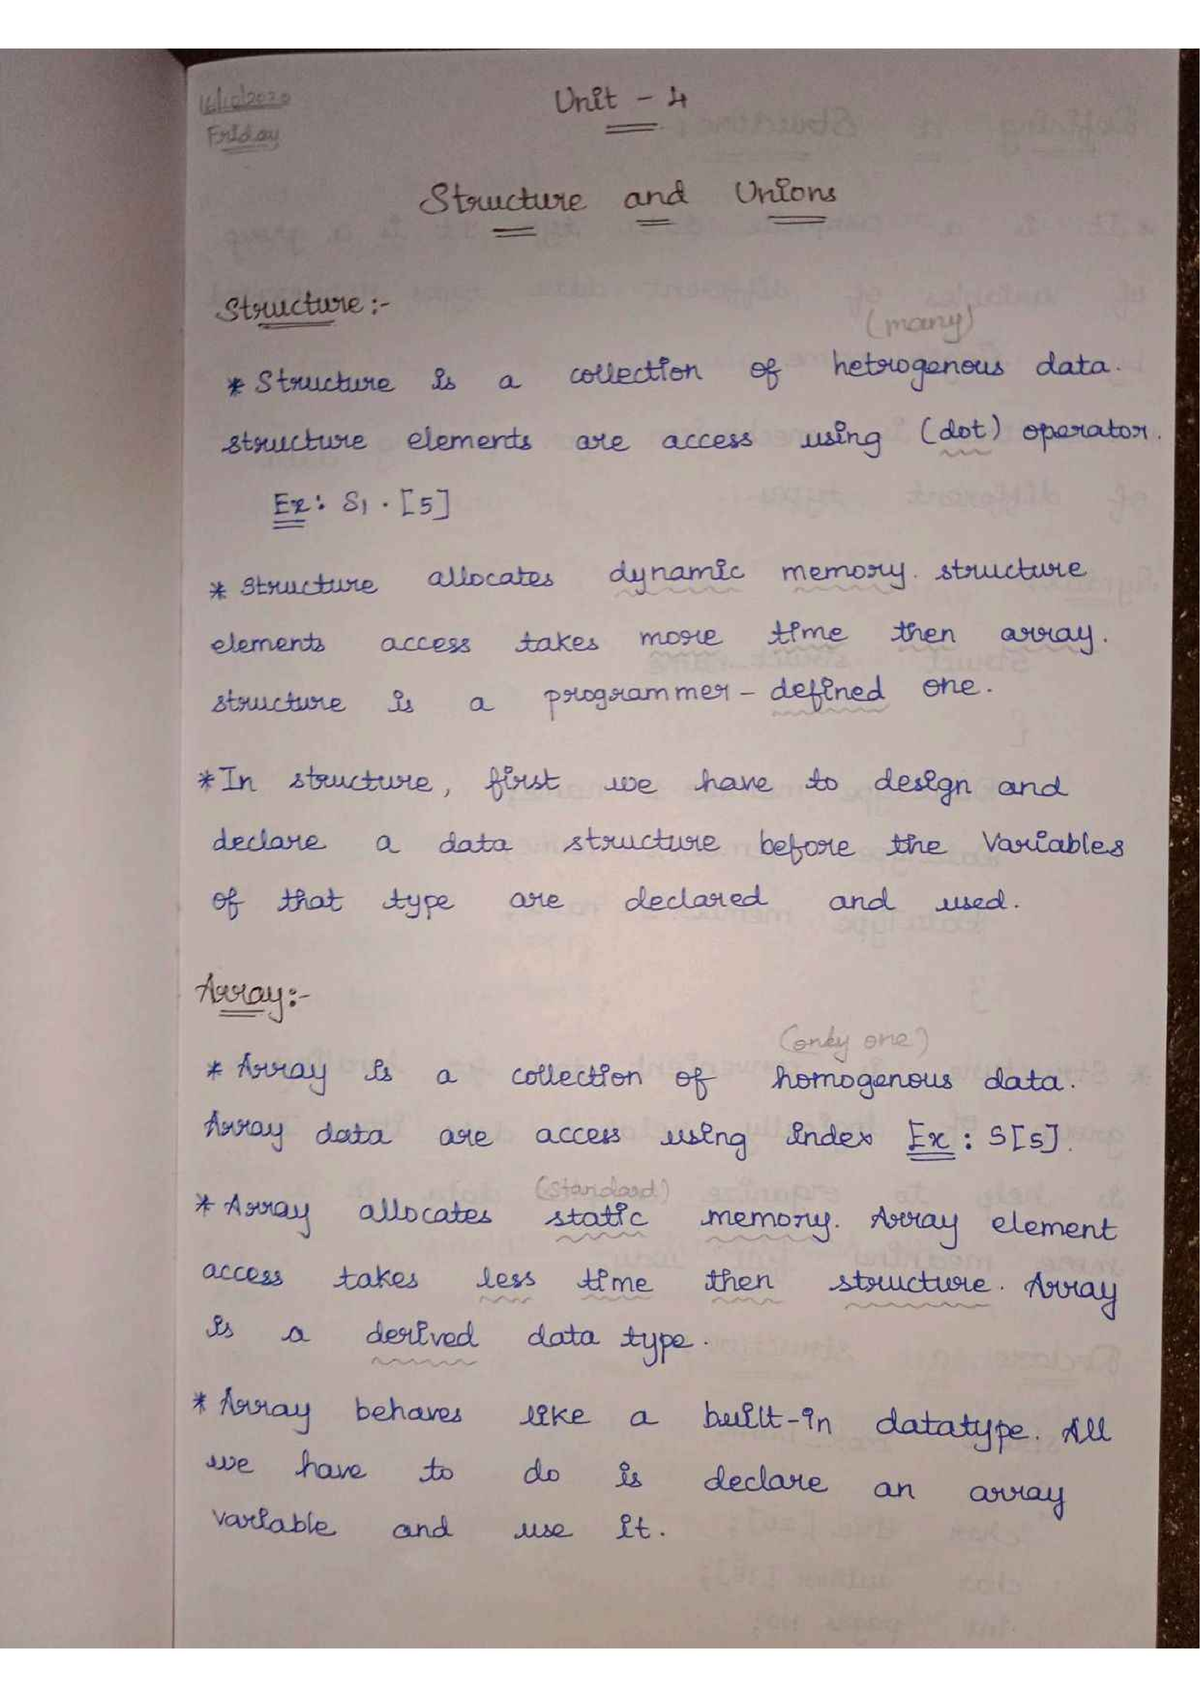 16/10/2020
Friday
Unit - 4
Structure and Unions
Structure:-
(many)
* Structure is a collection of hetrogenous data.
structure elements are access using (dot) operator.
Ex: S1 . [5]
* Structure allocates dynamic memory. structure
elements access takes more time then array.
structure is a programmer - defined one.
* In structure, first we have to design and
declare a data structure before the variables
of that type are declared and used.
Array:-
(only one)
* Array is a collection of homogenous data.
Array data are access using index Ex: S[5].
(standard)
* Array allocates static memory. Array element
access takes less time then structure. Array
is a derived data type.
* Array behaves like a built-in datatype. All
we have to do is declare an array
variable and use it.